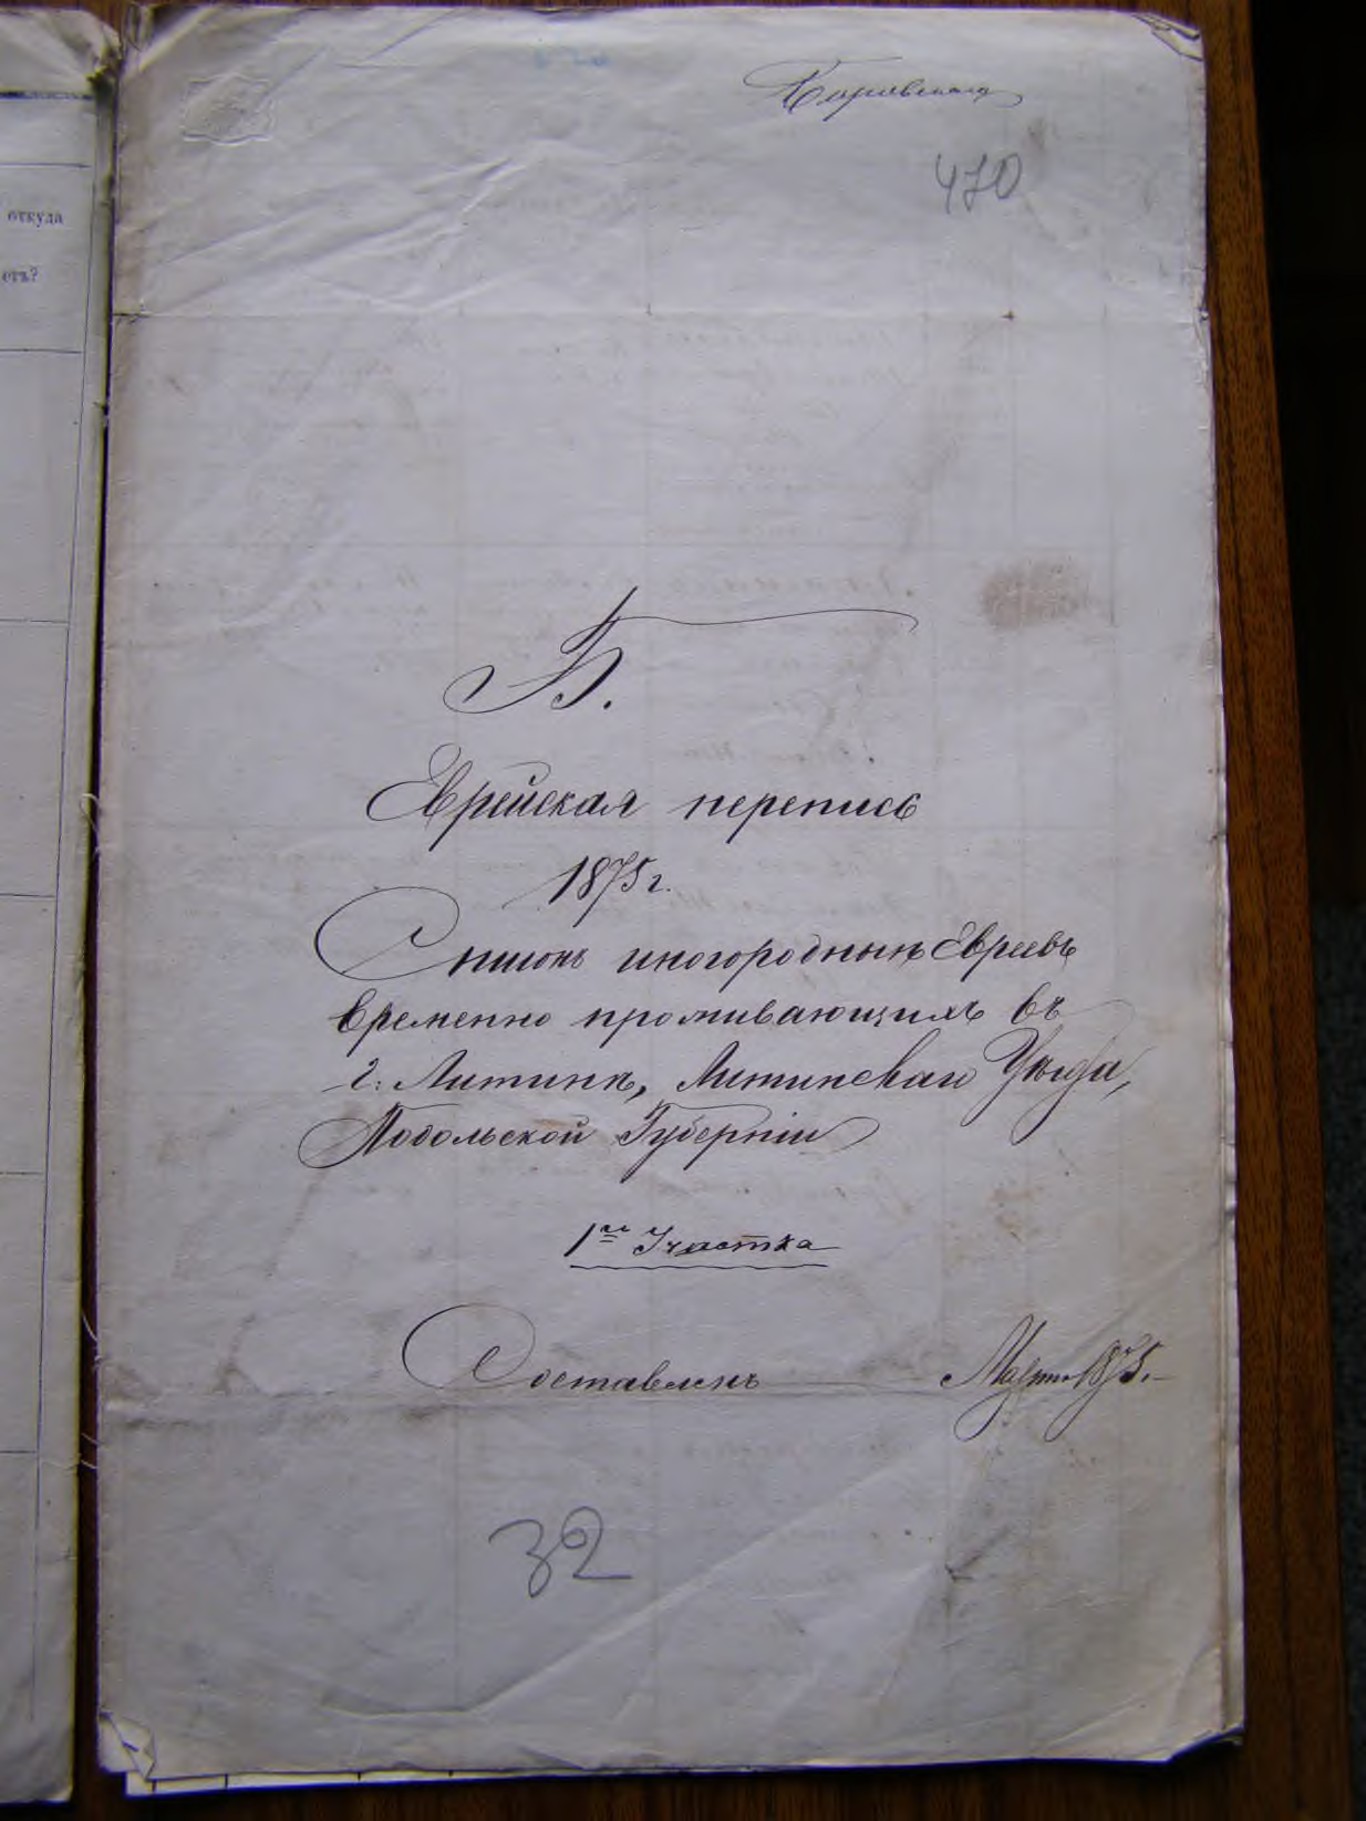 откуда
етъ?
470
Б.
Еврейская перепись
1875 г.
Списокъ иногородныхъ Евреевъ
временно проживающихъ въ
г: Литинѣ, Литинскаго Уѣзда,
Подольской Губерніи
1го Участка
Составленъ Марта 1875.
32